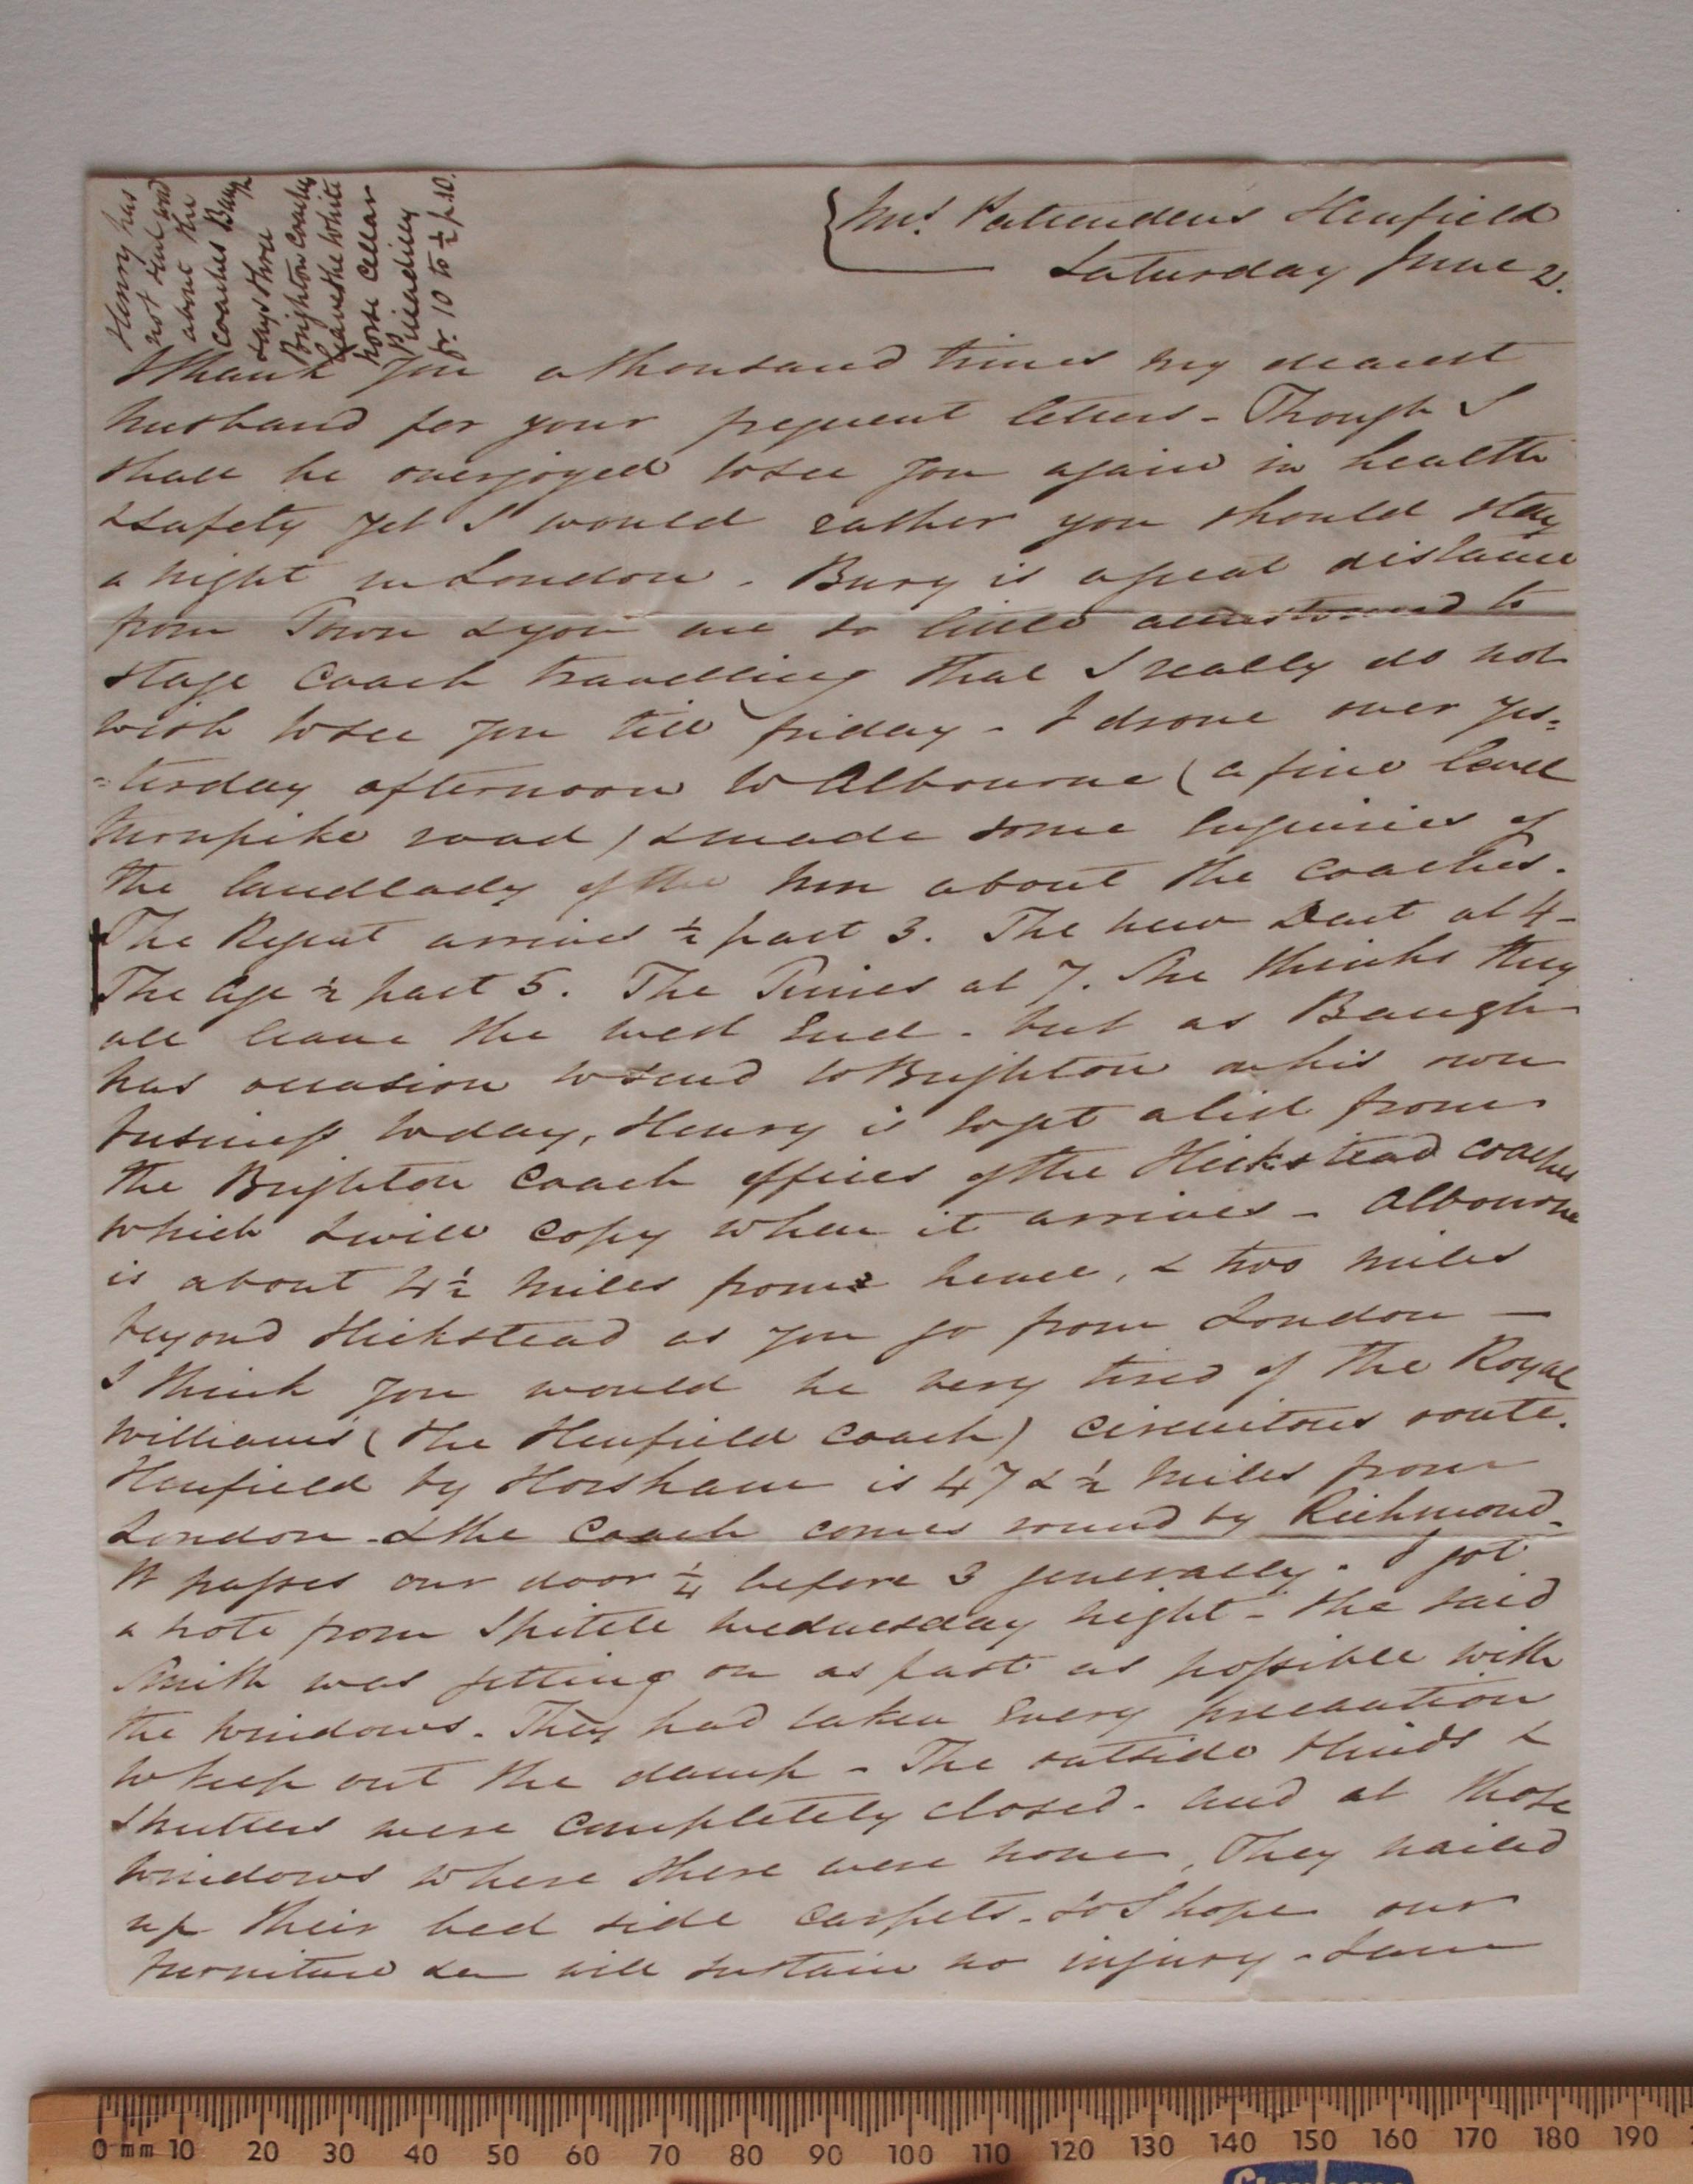 Henry has
not sent word
about the
coaches Baugh
says three
Brighton coaches
leave the white
horse Cellar
Piccadilly
fr. 10 to ½ p 10.
Mrs. Pattendens Henfield
Saturday June 2.
I thank you a thousand times my dearest
husband for your frequent letters - Though I
shall be overjoyed to see you again in health
& safety yet I would rather you should stay
a night in London - Bury is a great distance
from Town & you are so little accustomed to
stage coach travelling that I really do not
wish to see you till friday - I drove over yes=
=terday afternoon to Albourne (a fine level
turnpike road) & made some Enquiries of
the landlady of the Inn about the coaches.
The Regent arrives ½ past 3. The new Dart at 4 -
The Age ½ past 5. The Times at 7. She thinks they
all leave the west End - but as Baugh
has occasion to send to Brighton on his own
business today, Henry is to get a list from
the Brighton Coach offices of the Hickstead coaches
which I will copy when it arrives - Albourne
is about 4½ miles from hence, & two miles
beyond Hickstead as you go from London —
I think you would be very tired of the Royal
Williams (the Henfield coach) circuitous route.
Henfield by Horsham is 47 & ½ miles from
London - & the Coach comes round by Richmond -
It passes our door ¼ before 3 generally. I got
a note from Spittle wednesday night - She said
Smith was getting on as fast as possible with
the windows. They had taken Every precaution
to keep out the damp - The outside blinds &
shutters were completely closed - and at those
windows where there were none, They nailed
up their bed side carpets - so I hope our
furniture &c will sustain no injury - I am
0 mm 10 20 30 40 50 60 70 80 90 100 110 120 130 140 150 160 170 180 190